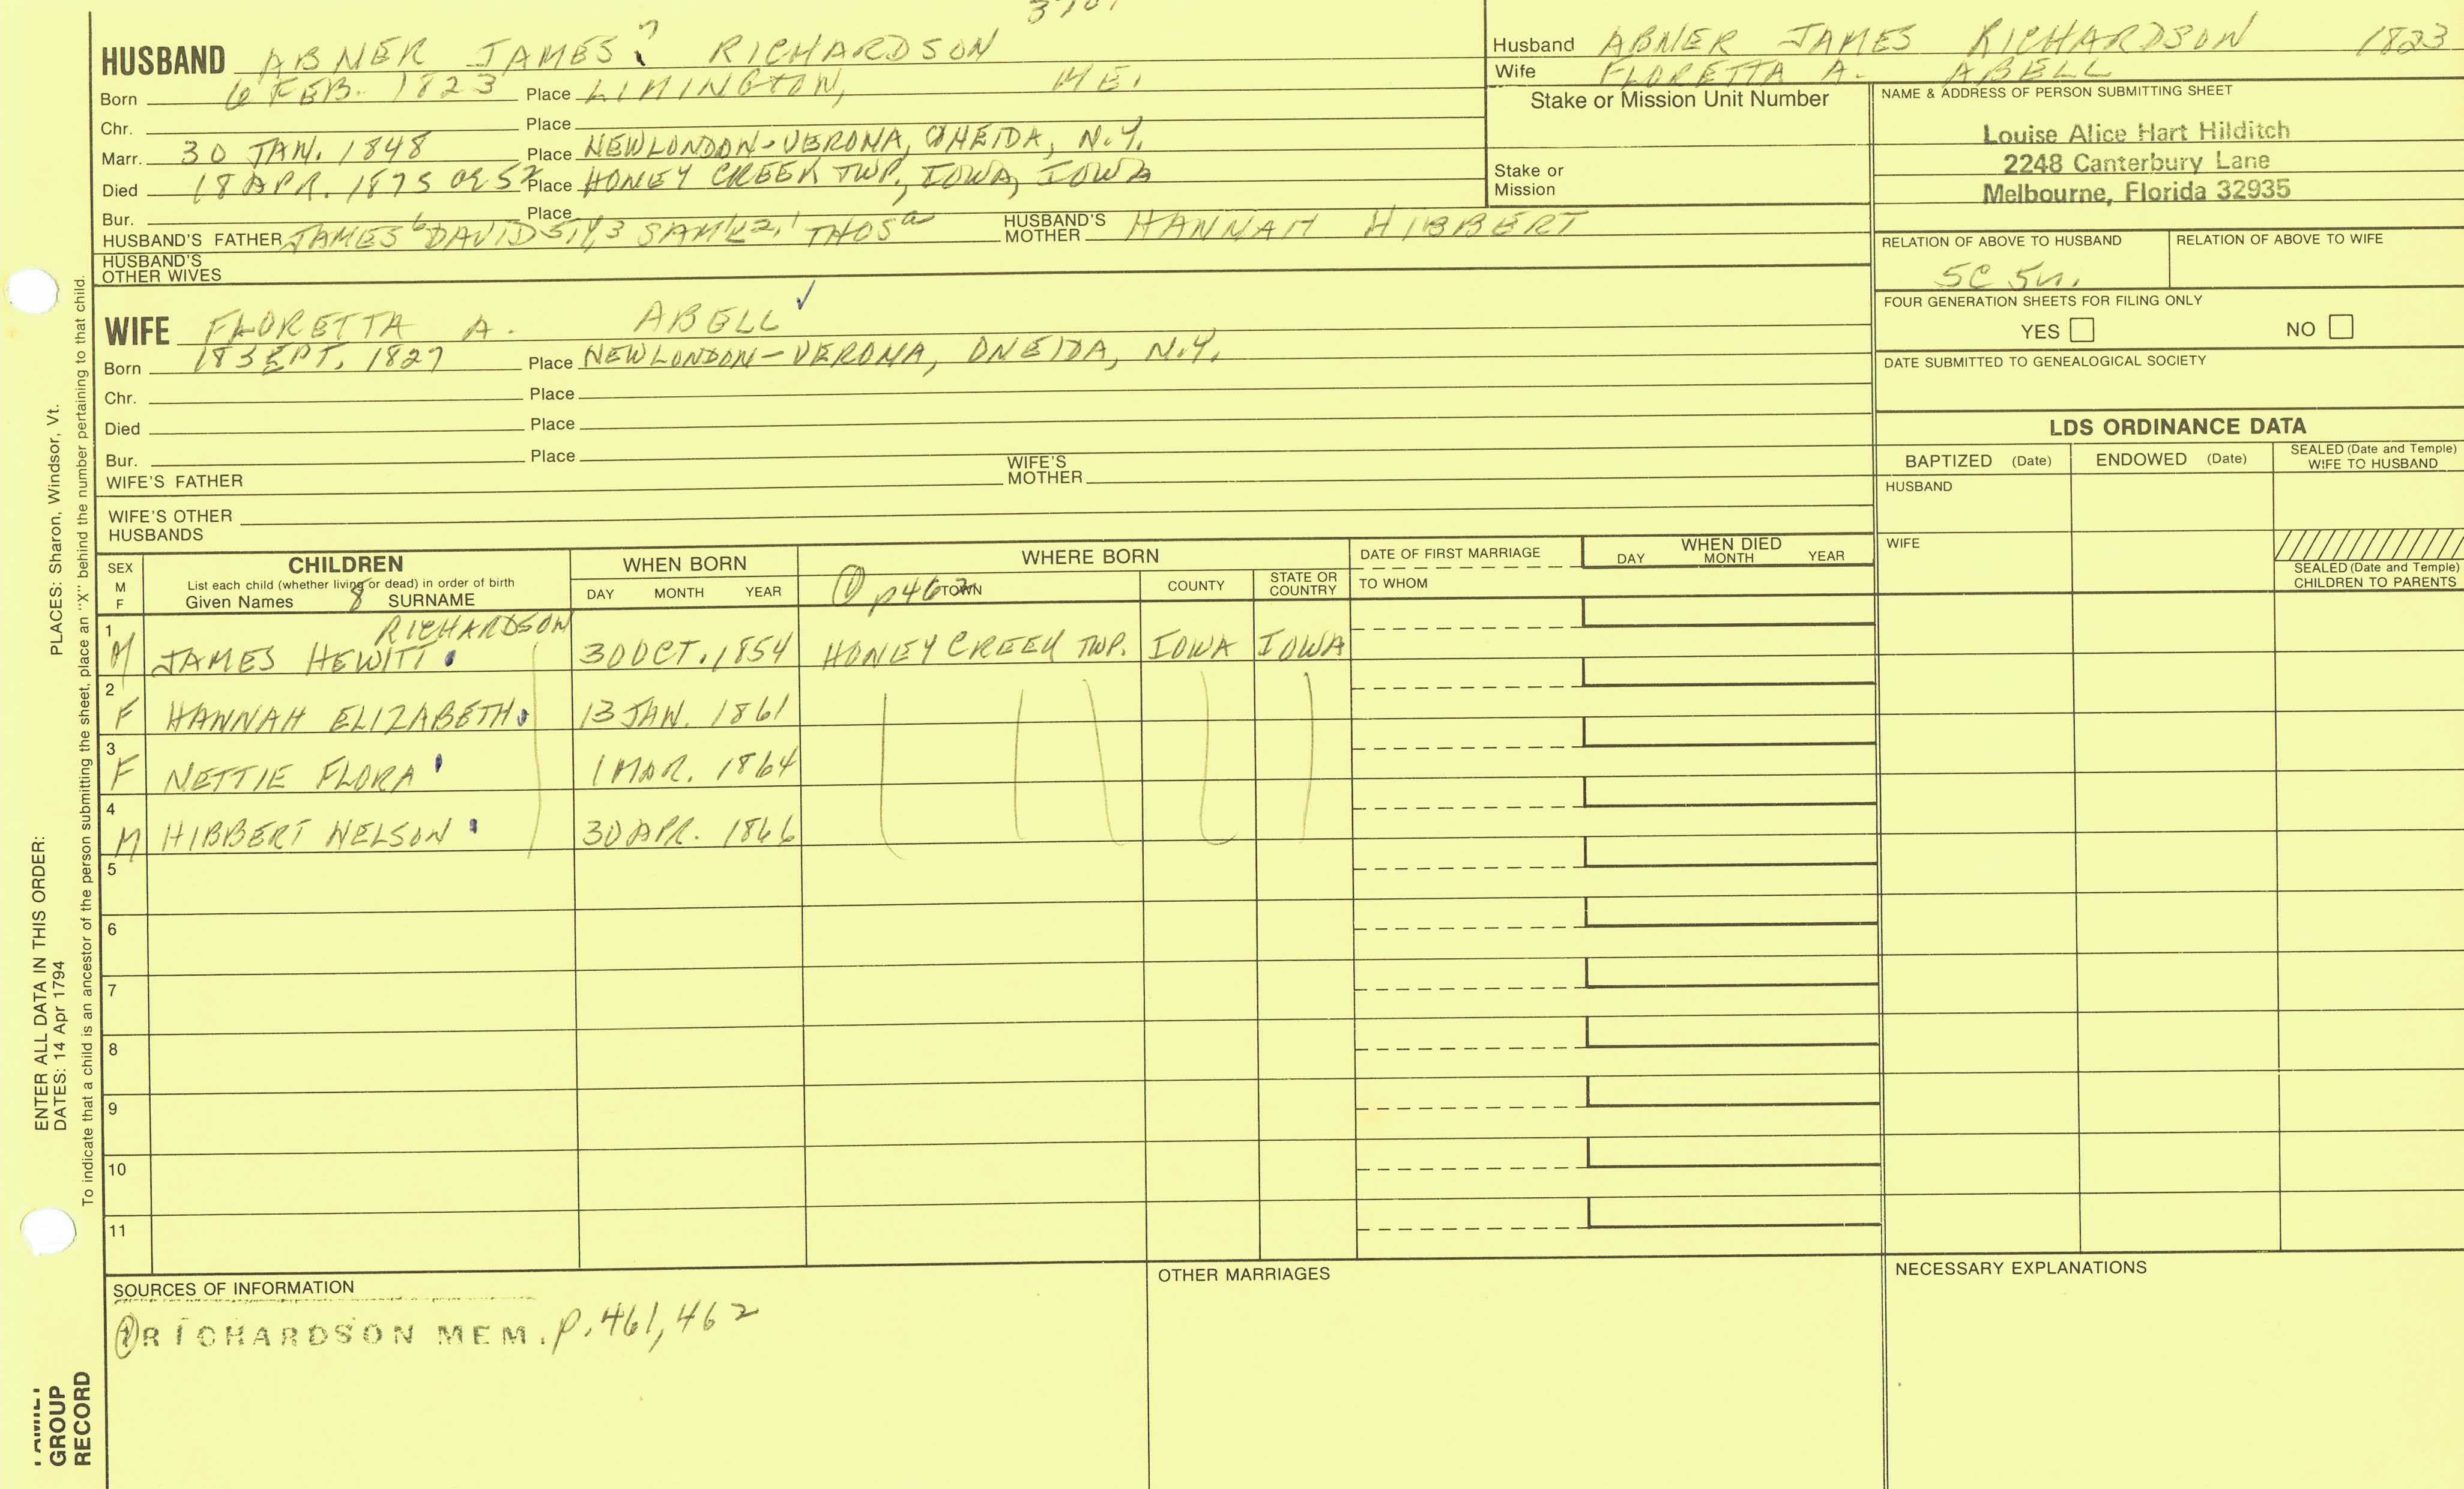 HUSBAND ABNER JAMES? RICHARDSON
Born 6 FEB. 1823 Place LIMINGTON, ME.
Chr. Place
Marr. 30 JAN. 1848 Place NEWLONDON-VERONA, ONEIDA, N.Y.
Died 18 APR. 1875 OR 52 Place HONEY CREEK TWP., IOWA, IOWA
Bur. Place
HUSBAND'S FATHER JAMES 6 DAVID HUSBAND'S MOTHER HANNAH HIBBERT
HUSBAND'S OTHER WIVES
WIFE FLORETTA A. ABELL ✓
Born 18 SEPT. 1827 Place NEWLONDON-VERONA, ONEIDA, N.Y.
Chr. Place
Died Place
Bur. Place
WIFE'S FATHER WIFE'S MOTHER
WIFE'S OTHER HUSBANDS
Husband ABNER JAMES RICHARDSON 1823
Wife FLORETTA A. ABELL
Stake or Mission Unit Number
Stake or
Mission
NAME & ADDRESS OF PERSON SUBMITTING SHEET
Louise Alice Hart Hilditch
2248 Canterbury Lane
Melbourne, Florida 32935
RELATION OF ABOVE TO HUSBAND RELATION OF ABOVE TO WIFE
5C 5
FOUR GENERATION SHEETS FOR FILING ONLY
YES NO
DATE SUBMITTED TO GENEALOGICAL SOCIETY
LDS ORDINANCE DATA
BAPTIZED (Date) ENDOWED (Date) SEALED (Date and Temple) WIFE TO HUSBAND
HUSBAND
WIFE
SEALED (Date and Temple) CHILDREN TO PARENTS
SEX M F CHILDREN WHEN BORN WHERE BORN DATE OF FIRST MARRIAGE WHEN DIED
List each child (whether living or dead) in order of birth
Given Names 8 SURNAME DAY MONTH YEAR ① p462 TOWN COUNTY STATE OR COUNTRY TO WHOM DAY MONTH YEAR
RICHARDSON
1 M JAMES HEWITT 30 OCT. 1854 HONEY CREEK TWP. IOWA IOWA
2 F HANNAH ELIZABETH 13 JAN. 1861
3 F NETTIE FLORA 1 MAR. 1864
4 M HIBBERT NELSON 30 APR. 1866
5
6
7
8
9
10
11
SOURCES OF INFORMATION
① RICHARDSON MEM. p. 461, 462
OTHER MARRIAGES
NECESSARY EXPLANATIONS
ENTER ALL DATA IN THIS ORDER:
DATES: 14 Apr 1794 PLACES: Sharon, Windsor, Vt.
To indicate that a child is an ancestor of the person submitting the sheet, place an "X" behind the number pertaining to that child.
GROUP
RECORD